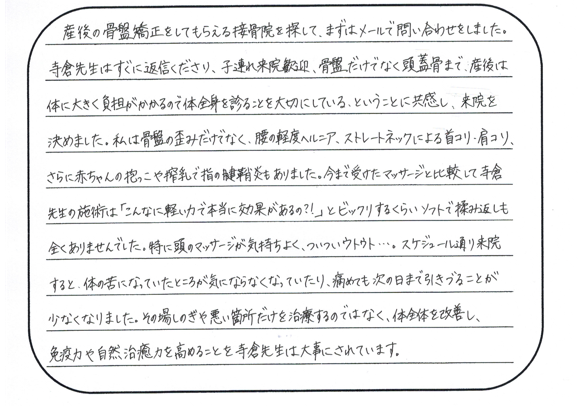 産後の骨盤矯正をしてもらえる接骨院を探して、まずはメールで問い合わせをしました。
寺倉先生はすぐに返信くださり、子連れ来院歓迎、骨盤だけでなく頭蓋骨まで、産後は
体に大きく負担がかかるので体全身を診ることを大切にしている、ということに共感し、来院を
決めました。私は骨盤の歪みだけでなく、腰の軽度ヘルニア、ストレートネックによる首コリ・肩コリ、
さらに赤ちゃんの抱っこや搾乳で指の腱鞘炎もありました。今まで受けたマッサージと比較して寺倉
先生の施術は「こんなに軽い力で本当に効果があるの?!」とビックリするくらいソフトで揉み返しも
全くありませんでした。特に頭のマッサージが気持ちよく、ついついウトウト…。スケジュール通り来院
すると、体の苦になっていたところが気にならなくなっていたり、痛めても次の日まで引きづることが
少なくなりました。その場しのぎや悪い箇所だけを治療するのではなく、体全体を改善し、
免疫力や自然治癒力を高めることを寺倉先生は大事にされています。